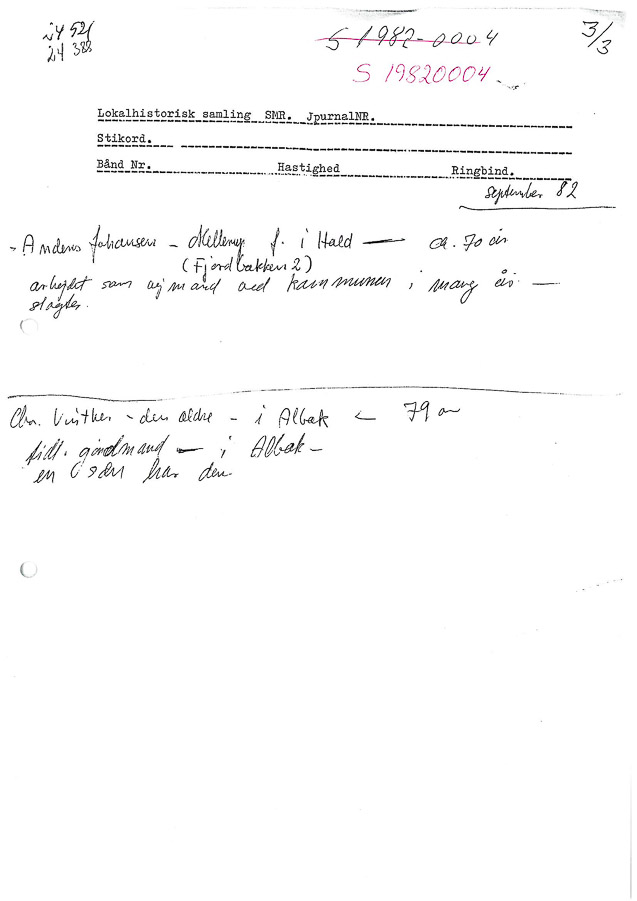 24 521
24 388
S 1982-0004
3/3
S 19820004
Lokalhistorisk samling SMR. JpurnalNR.
Stikord.
Bånd Nr. Hastighed Ringbind.
september 82
- Anders Johansen - Mellerup f. i Hald — ca. 70 år
(Fjordbakken 2)
arbejdet som vejmand ved kommunen i mang år —
slagter.
Chr. Vinther - den ældre - i Albæk — 79 år
tidl. gårdmand — i Albæk -
en søn har den